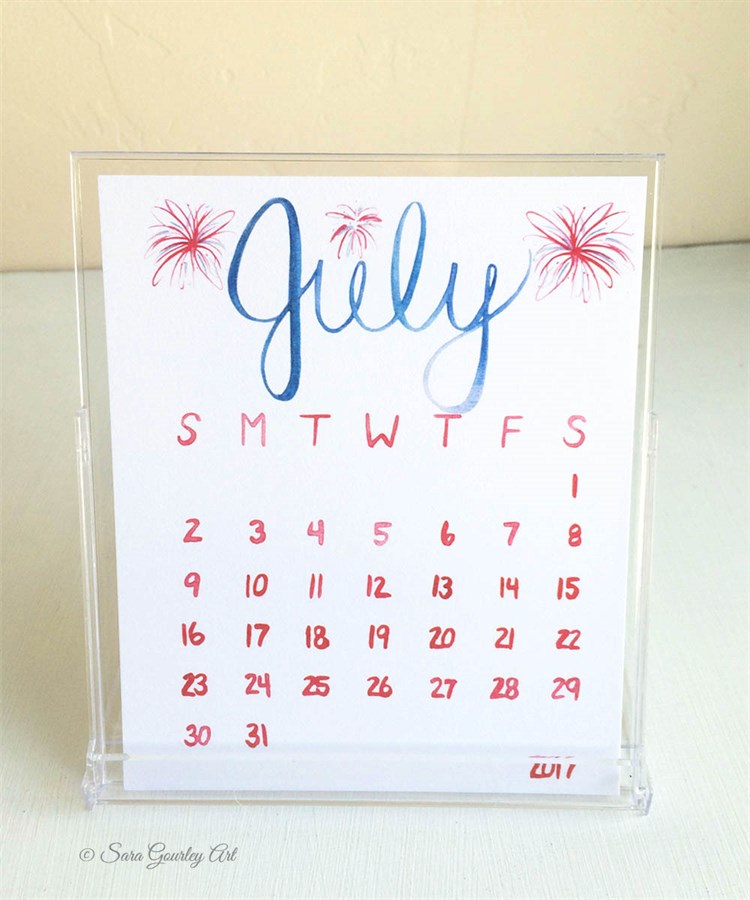 July
S M T W T F S
1
2 3 4 5 6 7 8
9 10 11 12 13 14 15
16 17 18 19 20 21 22
23 24 25 26 27 28 29
30 31
2017
© Sara Gourley Art